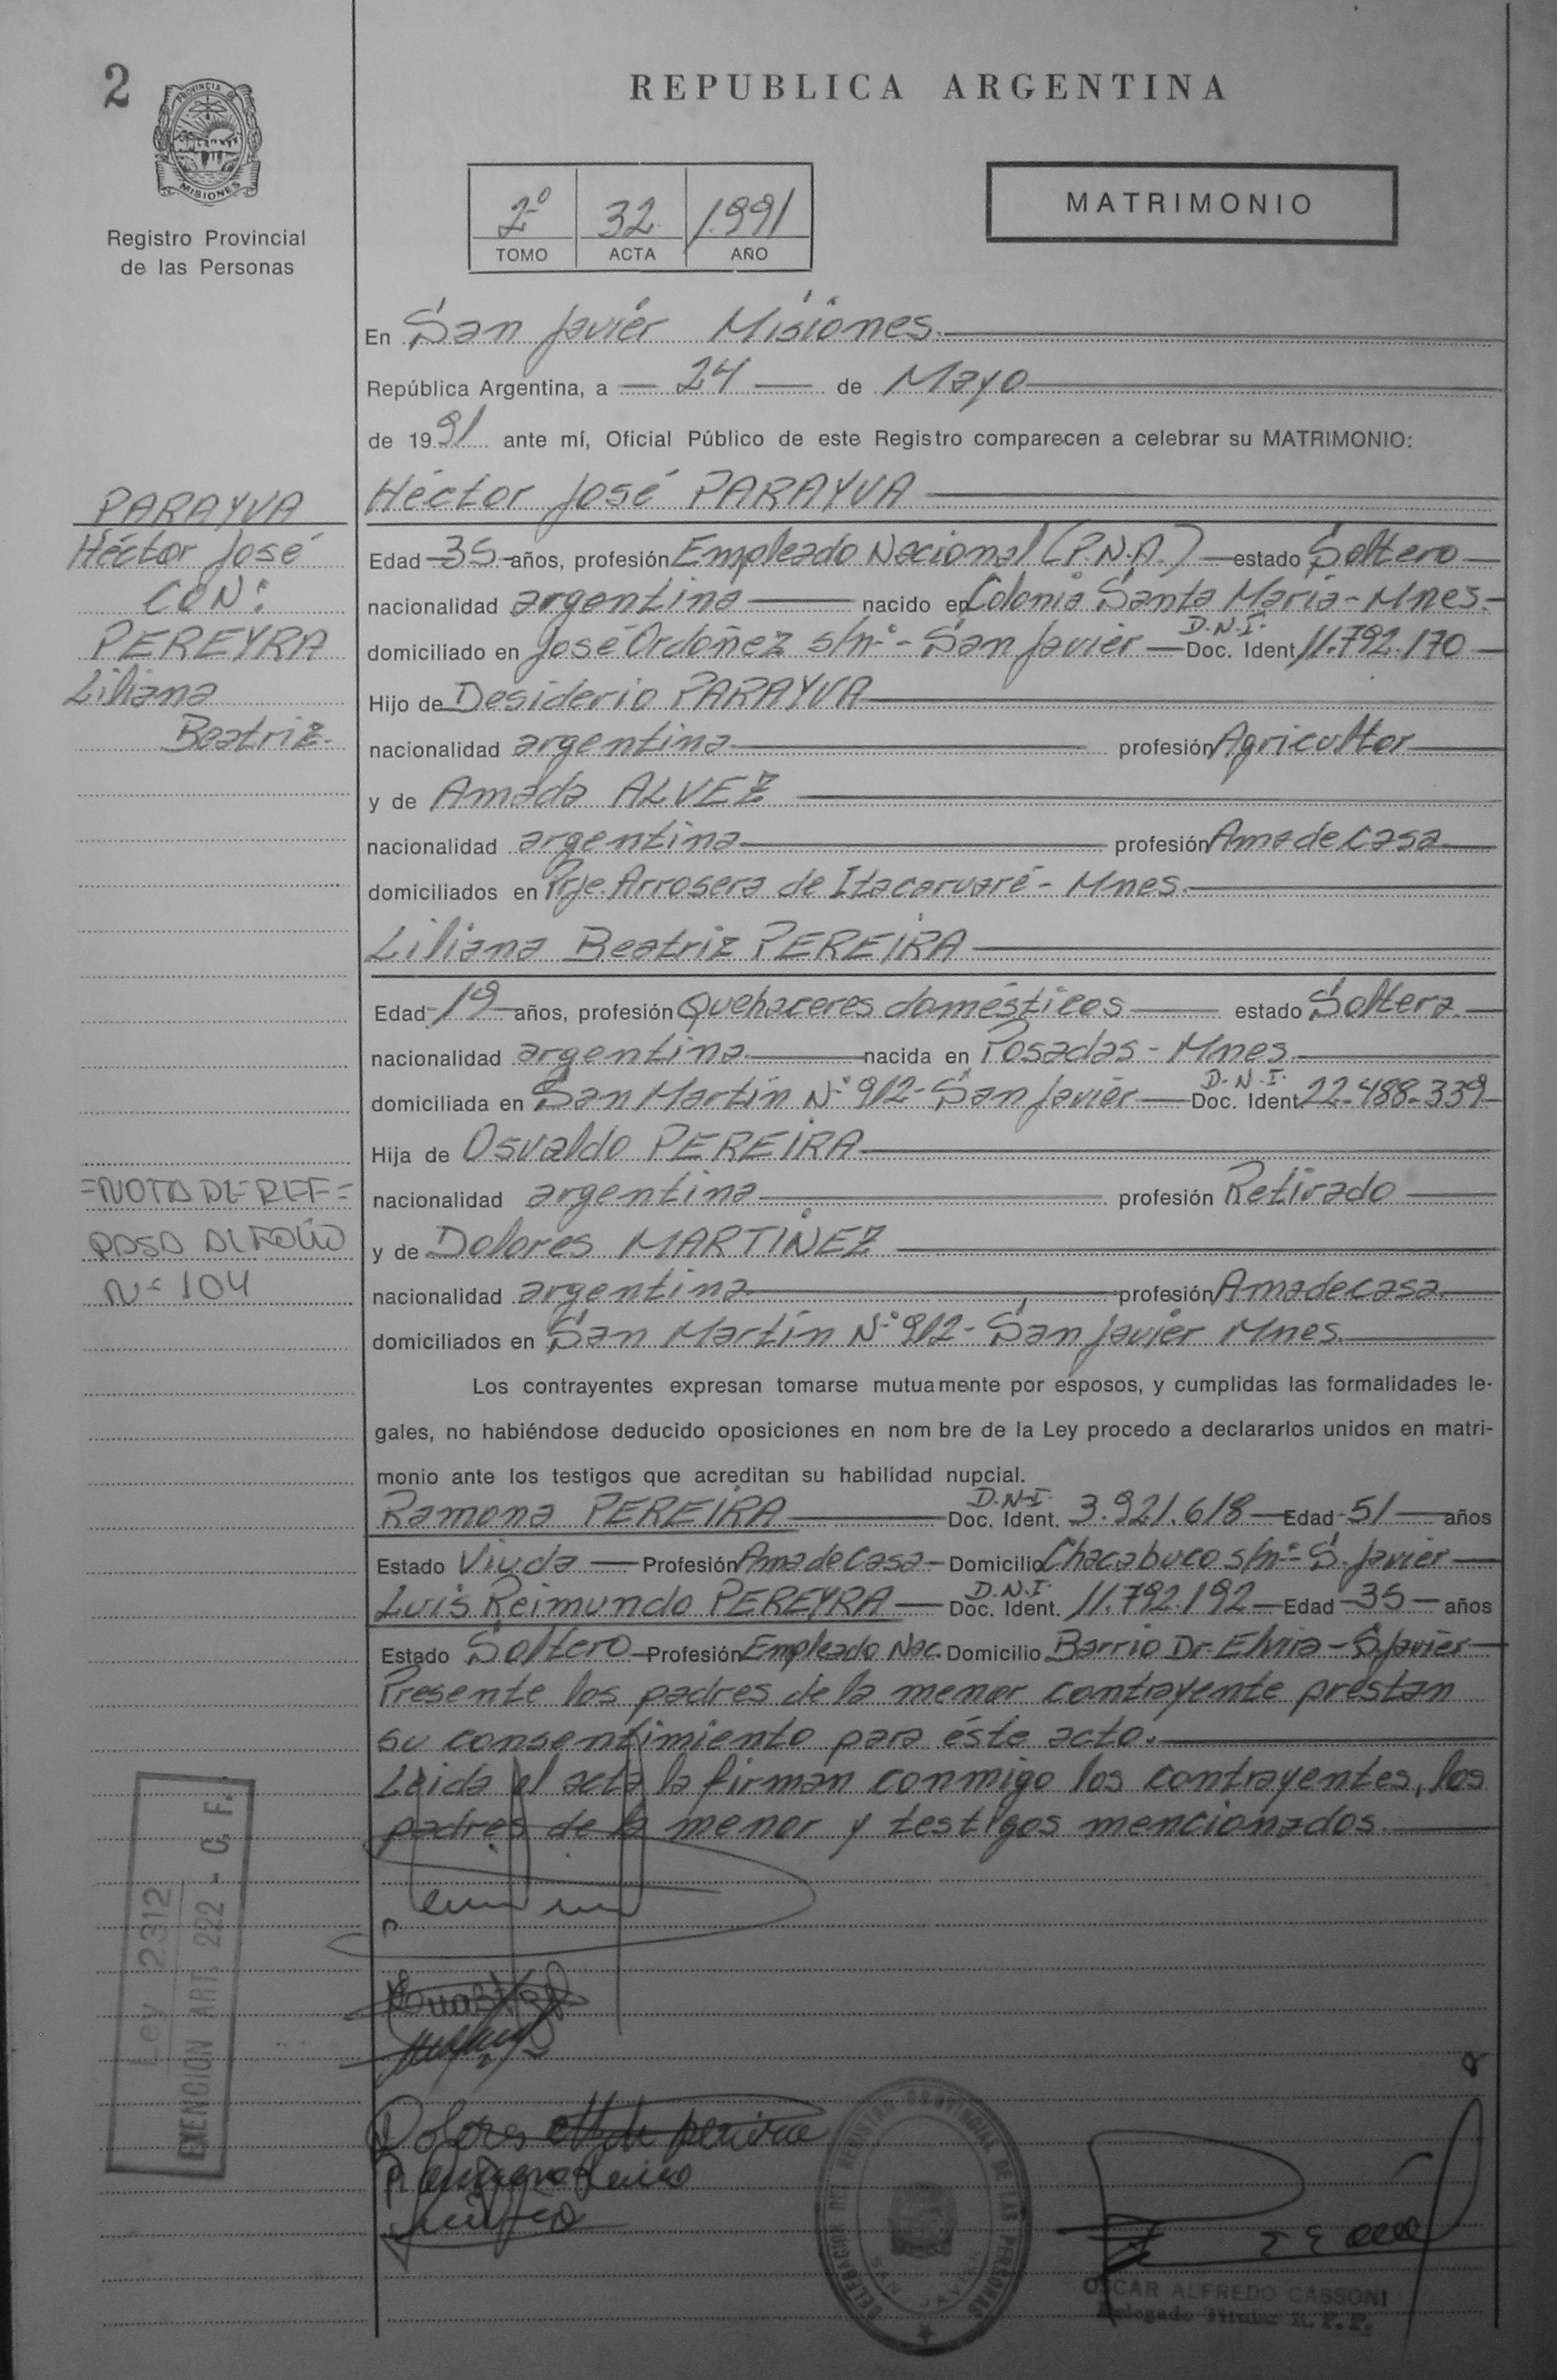 2
PROVINCIA DE
MISIONES
Registro Provincial
de las Personas
REPUBLICA ARGENTINA
2º 32 1991
TOMO ACTA AÑO
MATRIMONIO
En San Javier Misiones.
República Argentina, a 24 de Mayo
de 1991 ante mí, Oficial Público de este Registro comparecen a celebrar su MATRIMONIO:
PARAYVA
Héctor José
CON:
PEREYRA
Liliana
Beatriz.
Héctor José PARAYVA
Edad 35 años, profesión Empleado Nacional (P.N.A.) estado Soltero
nacionalidad argentina nacido en Colonia Santa María - Mnes.
domiciliado en José Ordoñez s/nº - San Javier D.N.I. Doc. Ident 11.792.170
Hijo de Desiderio PARAYVA
nacionalidad argentina profesión Agricultor
y de Amada ALVEZ
nacionalidad argentina profesión Ama de casa
domiciliados en Pje. Arrosera de Itacaruaré - Mnes.
Liliana Beatriz PEREIRA
Edad 19 años, profesión Quehaceres domésticos estado Soltera.
nacionalidad argentina nacida en Posadas - Mnes.
domiciliada en San Martín Nº 912 - San Javier D.N.I. Doc. Ident. 22.488.339
Hija de Osvaldo PEREIRA
nacionalidad argentina profesión Retirado
y de Dolores MARTINEZ
nacionalidad argentina profesión Ama de casa
domiciliados en San Martín Nº 912 - San Javier Mnes.
=NOTA DE REF=
PASA AL FOLIO
Nº 104
Los contrayentes expresan tomarse mutuamente por esposos, y cumplidas las formalidades le-
gales, no habiéndose deducido oposiciones en nom bre de la Ley procedo a declararlos unidos en matri-
monio ante los testigos que acreditan su habilidad nupcial.
Ramona PEREIRA D.N.I. Doc. Ident. 3.921.618 Edad 51 años
Estado Viuda Profesión Ama de Casa Domicilio Chacabuco s/nº - S. Javier
Luis Reimundo PEREYRA D.N.I. Doc. Ident. 11.792.192 Edad 35 años
Estado Soltero Profesión Empleado Nac. Domicilio Barrio Dr. Elvira - S. Javier
Presente los padres de la menor contrayente prestan
su consentimiento para éste acto.
Leida el acta la firman conmigo los contrayentes, los
padres de la menor y testigos mencionados.
Ley 2312
EXENCION ART. 292 - C. F.
Dolores
DELEGACION DEL REGISTRO PROVINCIAL DE LAS PERSONAS
SAN JAVIER
OSCAR ALFREDO CASSONI
Delegado Titular R. P. P.